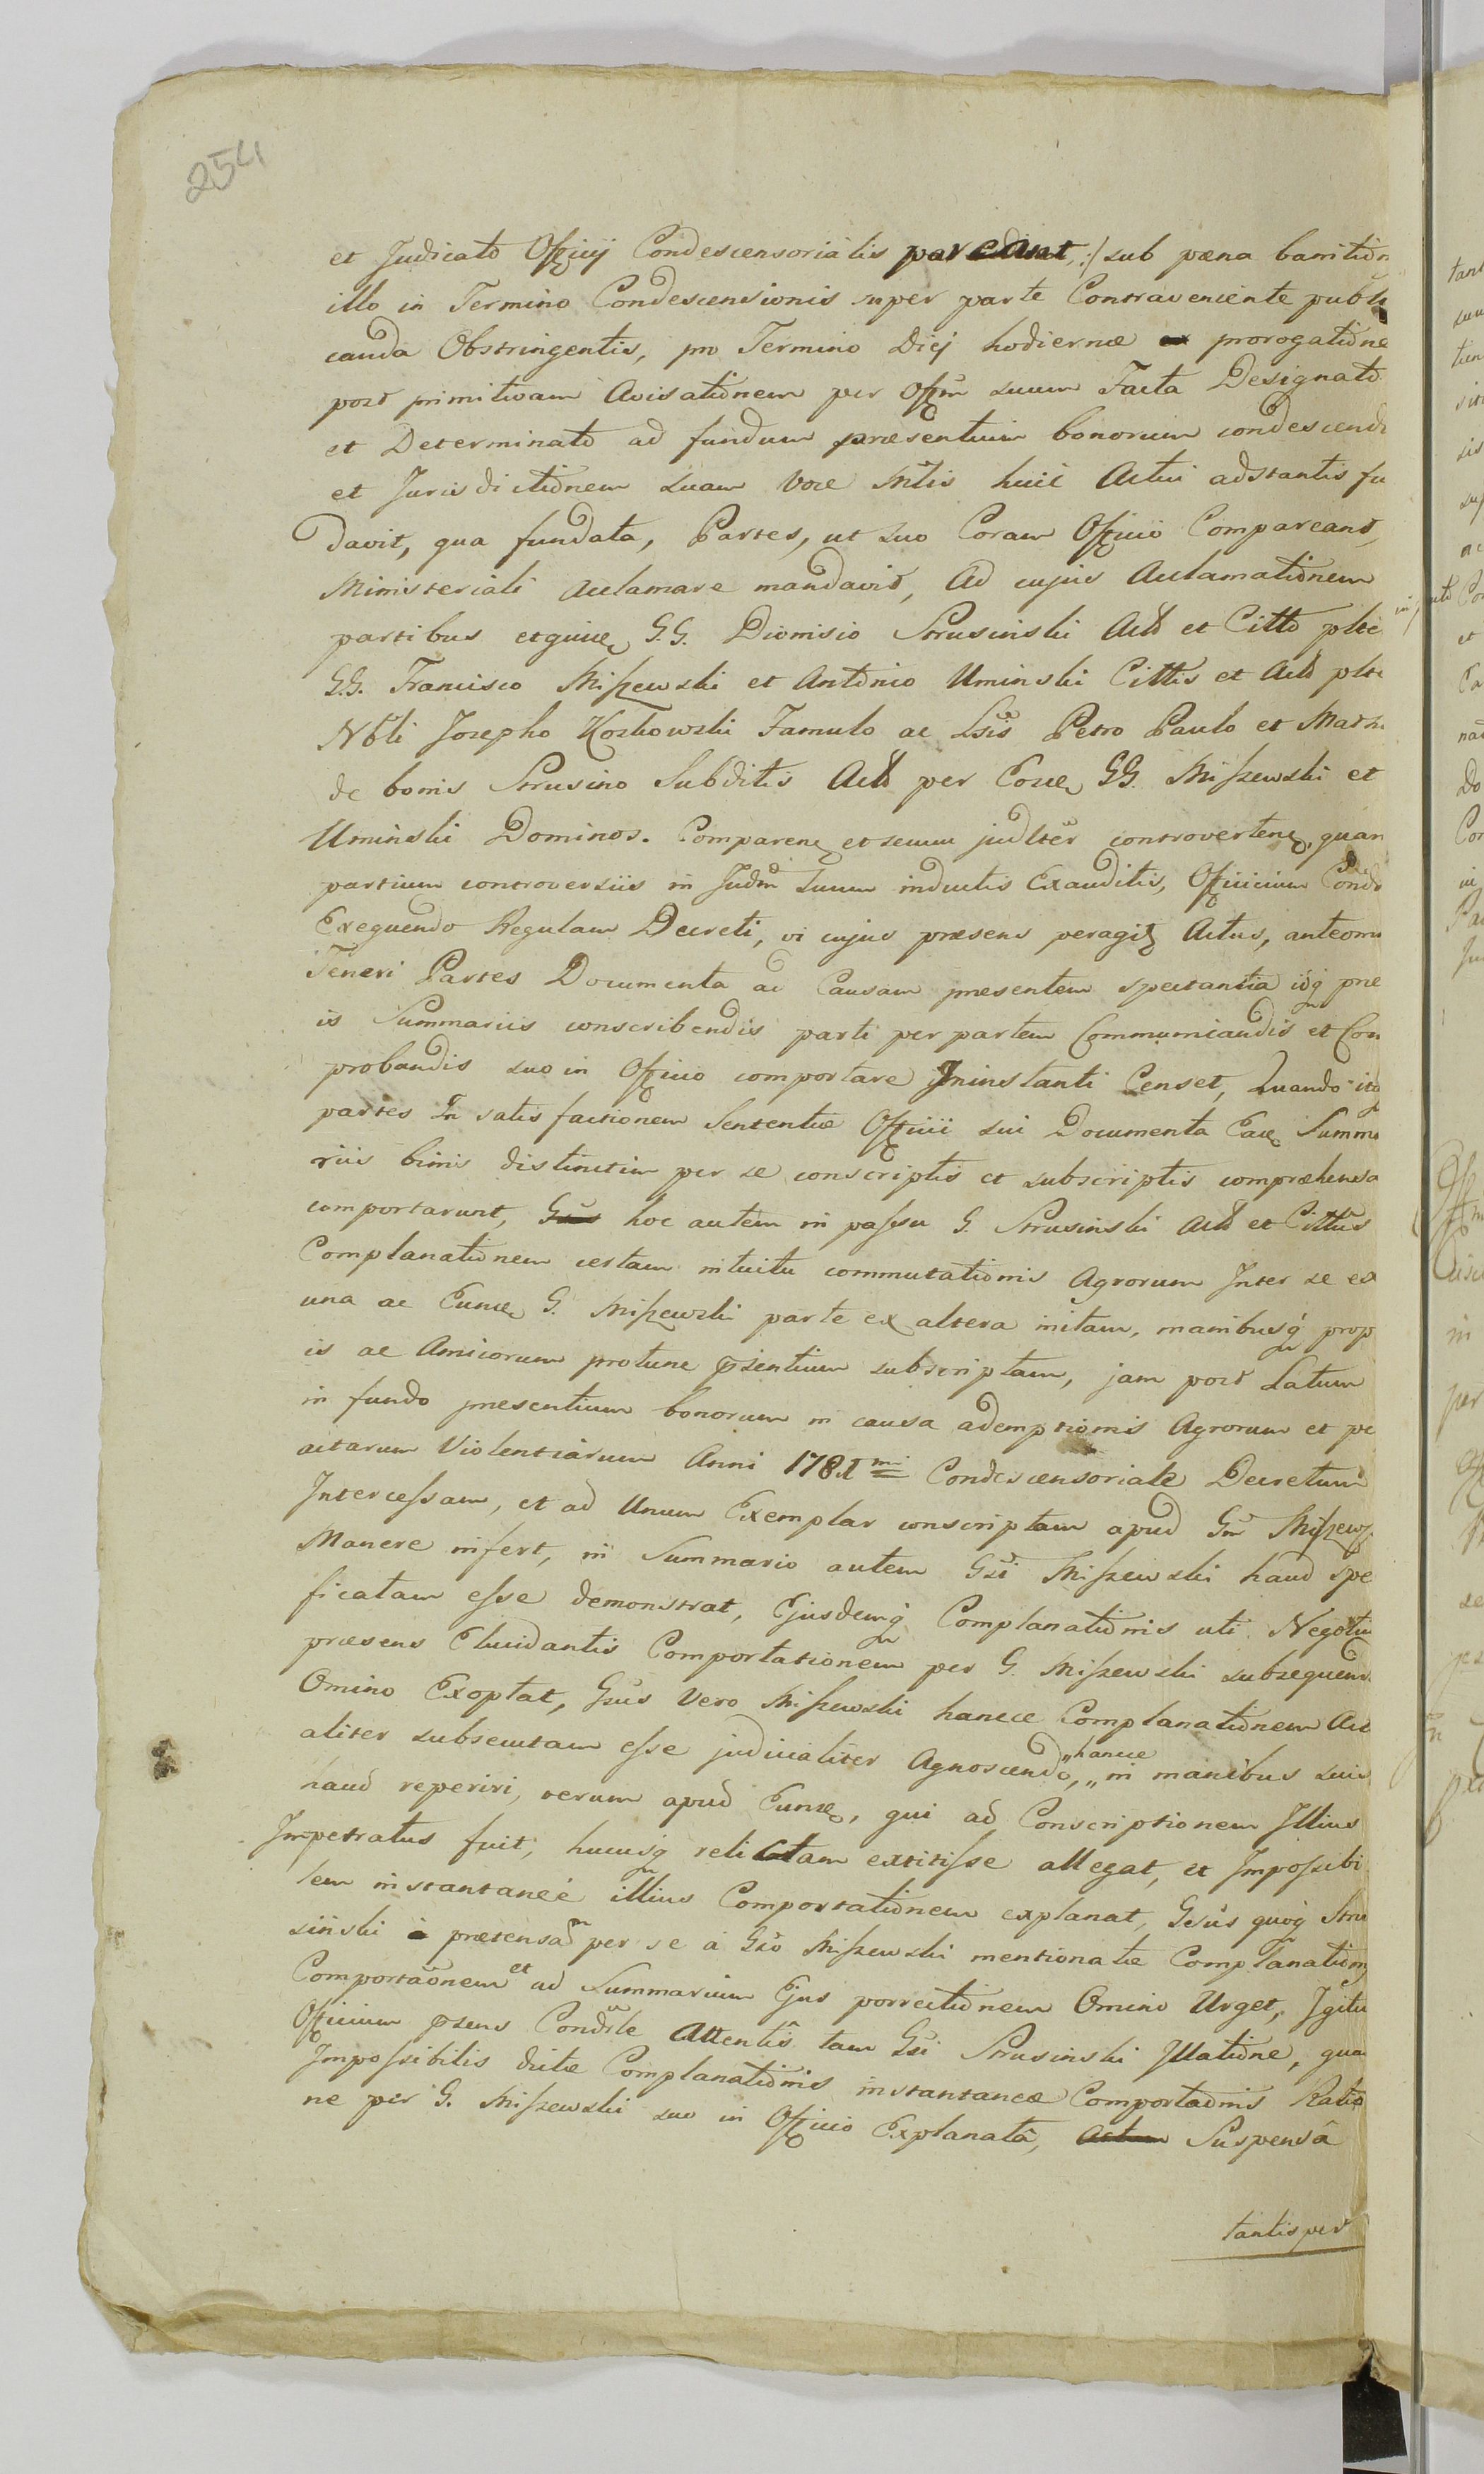 254
et Judicato Officij Condescensorialis pareant, :/ sub pæna banition
illo in Termino Condescensionis super parte Contraveniente publi
canda Obstringentis, pro Termino Diej hodiernæ prorogatione
post primitivam Avisationem per Offm suum Facta Designato
et Determinato ad fundum præsentium bonorum condescendi
et Jurisdictionem suam Voce Mtlis huic Actui adstantis fu
davit, qua fundata, Partes, ut suo Coram Officio Compareant,
Ministeriali Acclamare mandavit, Ad cujus Acclamationem
partibus
G.G. Dionisio Strusinski Actt et Citto
G.G. Francisco Miszewski et Antonio Uminski Cittis et Actt
Nbli Josepho Kozkowski Famulo ac Lsis Petro Paulo et
de bonis Strusino Subditis Actt per Eosce GG. Miszewski et
Uminski Dominos. Comparen et secum judlter controverten, quar
partium controversiis in Judm suum inductis Exauditis, Officium Cond
Exequendo Regulam Decreti, vi cujus præsens peragit Actus, anteom
Teneri Partes Documenta ad Causam præsentem spectantia idq præ
is Summariis conscribendis parti per partem Communicandis et Com
probandis suo in Officio comportare Ininstanti Censet, Quando ita
partes In satisfactionem Sententiæ Officii sui Documenta Eace Summa
riis binis distinctim per se conscriptis et subscriptis compræhensa
comportarunt, hoc autem in passu G. Strusinski Actt et Cittus
Complanationem certam intuitu commutationis Agrorum Inter se ex
una ac Eunce G. Miszewski parte ex altera initam, manibusq prop
is ac Amicorum protunc psentium subscriptam, jam post Latum
in fundo præsentium bonorum in causa ademptionis Agrorum et pe
actarum Violentiarum Anni 1781mi Condescensoriale Decretum
Intercessam, et ad Unum Exemplar conscriptam apud Gm Miszews
Manere infert, in Summario autem Gsi Miszewski haud spe
ficatam esse demonstrat, Ejusdemq Complanationis uti Negotiu
præsens Elucidantis Comportationem per G. Miszewski subsequend
Omino Exoptat, Gsus Vero Miszewski hancce Complanationem Act
aliter subsecutam esse judicialiter Agnoscendo, „hancce „ in manibus suis
haud reperiri, verum apud Eunce, qui ad Conscriptionem Illius
Impetratus fuit, hucusq relictam extitisse allegat, et Impossibi
lem instantanee illius Comportationem explanat, Gsus quoq Stru
siński prætensam per se a Gso Miszewski mentionatæ Complanation
Comportaonem et ad Summarium Ejus porrectionem Omino Urget, Igitu
Officium psens Condsle Attentis tam Gsi Strusinski Illatione, qua
Impossibilis dictæ Complanationis instantaneæ Comportaonis Ratio
ne per G. Miszewski suo in Officio Explanatâ, Suspensâ
tantisper